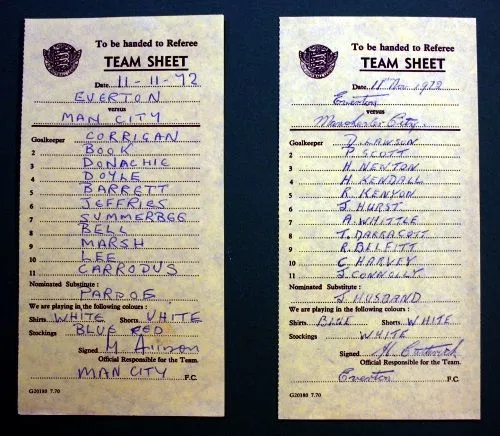 To be handed to Referee
TEAM SHEET
Date 11-11-72
EVERTON
versus
MAN CITY
Goalkeeper CORRIGAN
2 BOOK
3 DONACHIE
4 DOYLE
5 BARRETT
6 JEFFRIES
7 SUMMERBEE
8 BELL
9 MARSH
10 LEE
11 CARRODUS
Nominated Substitute :
PARDOE
We are playing in the following colours :
Shirts WHITE Shorts WHITE
Stockings BLUE RED
Signed M Allison
Official Responsible for the Team.
MAN CITY F.C.
G20180 7.70
To be handed to Referee
TEAM SHEET
Date 11 Nov 1972
Everton
versus
Manchester City.
Goalkeeper D. LAWSON
2 P. SCOTT
3 H. NEWTON
4 H. KENDALL
5 R. KENYON
6 J. HURST
7 A. WHITTLE
8 T. DARRACOTT
9 R. BELFITT
10 C. HARVEY
11 J. CONNOLLY
Nominated Substitute :
J. HUSBAND
We are playing in the following colours :
Shirts BLUE Shorts WHITE
Stockings WHITE
Signed
Official Responsible for the Team.
Everton F.C.
G20180 7.70